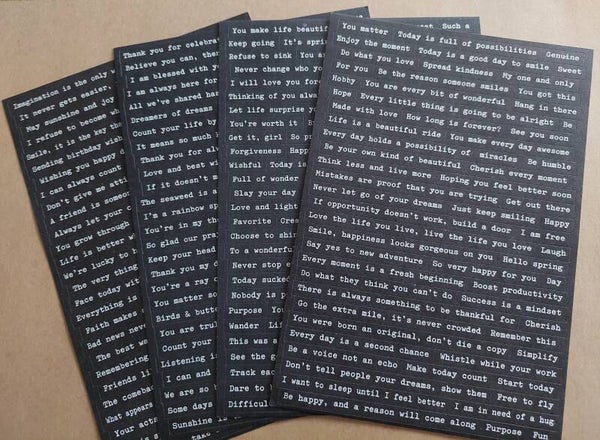 Imagination is the only
It never gets easier,
May sunshine and joy
I refuse to become wh
Smile, it is the key tha
Sending birthday wi
Wishing you happy
I can always count
Don't give me atti
A friend is someo
Always let your
You grow through
Life is better w
We're lucky to b
The very thing
Face today wit
Everything is
Faith makes
Bad news never
The best wa
Remembering
Friends li
The comeba
What appears
Your acti
Thank you for celebra
Believe you can, the
I am blessed with yo
I am always here fo
All we've shared ha
Dreamers of dreams
Count your life by
It means so much
Thank you for alw
Love and best wi
If it doesn't
The seaweed is a
I'm a rainbow
You're in my th
So glad our
Keep your head
Thank you my d
You're a ray o
You matter so
Birds & butt
You are trul
Count your
Listening i
I can and
We are so
Some days
Sunshine is
take
You make life beautif
Keep going It's spri
Refuse to sink You a
Never change who yo
I will love you fore
Thinking of you alway
Let life surprise you
You're worth it
Get it, girl So p
Forgiveness Happ
Wishful Today is
Full of wonder
Slay your day
Love and light
Favorite Cres
Choose to shin
To a wonderful
Never stop
Today sucked
Nobody is p
Purpose You
Wander Life
This was
See the g
Track eac
Dare to
Difficul
Such a
You matter Today is full of possibilities Genuine
Enjoy the moment Today is a good day to smile Sweet
Do what you love Spread kindness My one and only
For You Be the reason someone smiles You got this
Hobby You are every bit of wonderful Hang in there
Hope Every little thing is going to be alright Be
Made with love How long is forever? See you soon
Life is a beautiful ride You make every day awesome
Every day holds a possibility of miracles Be humble
Be your own kind of beautiful Cherish every moment
Think less and live more Hoping you feel better soon
Mistakes are proof that you are trying Get out there
Never let go of your dreams Just keep smiling Happy
If opportunity doesn't work, build a door I am free
Love the life you live, live the life you love Laugh
Smile, happiness looks gorgeous on you Hello spring
Say yes to new adventure So very happy for you Day
Every moment is a fresh beginning Boost productivity
Do what they think you can't do Success is a mindset
There is always something to be thankful for Cherish
Go the extra mile, it's never crowded Remember this
You were born an original, don't die a copy Simplify
Every day is a second chance Whistle while your work
Be a voice not an echo Make today count Start today
Don't tell people your dreams, show them Free to fly
I want to sleep until I feel better I am in need of a hug
Be happy, and a reason will come along Purpose Fun